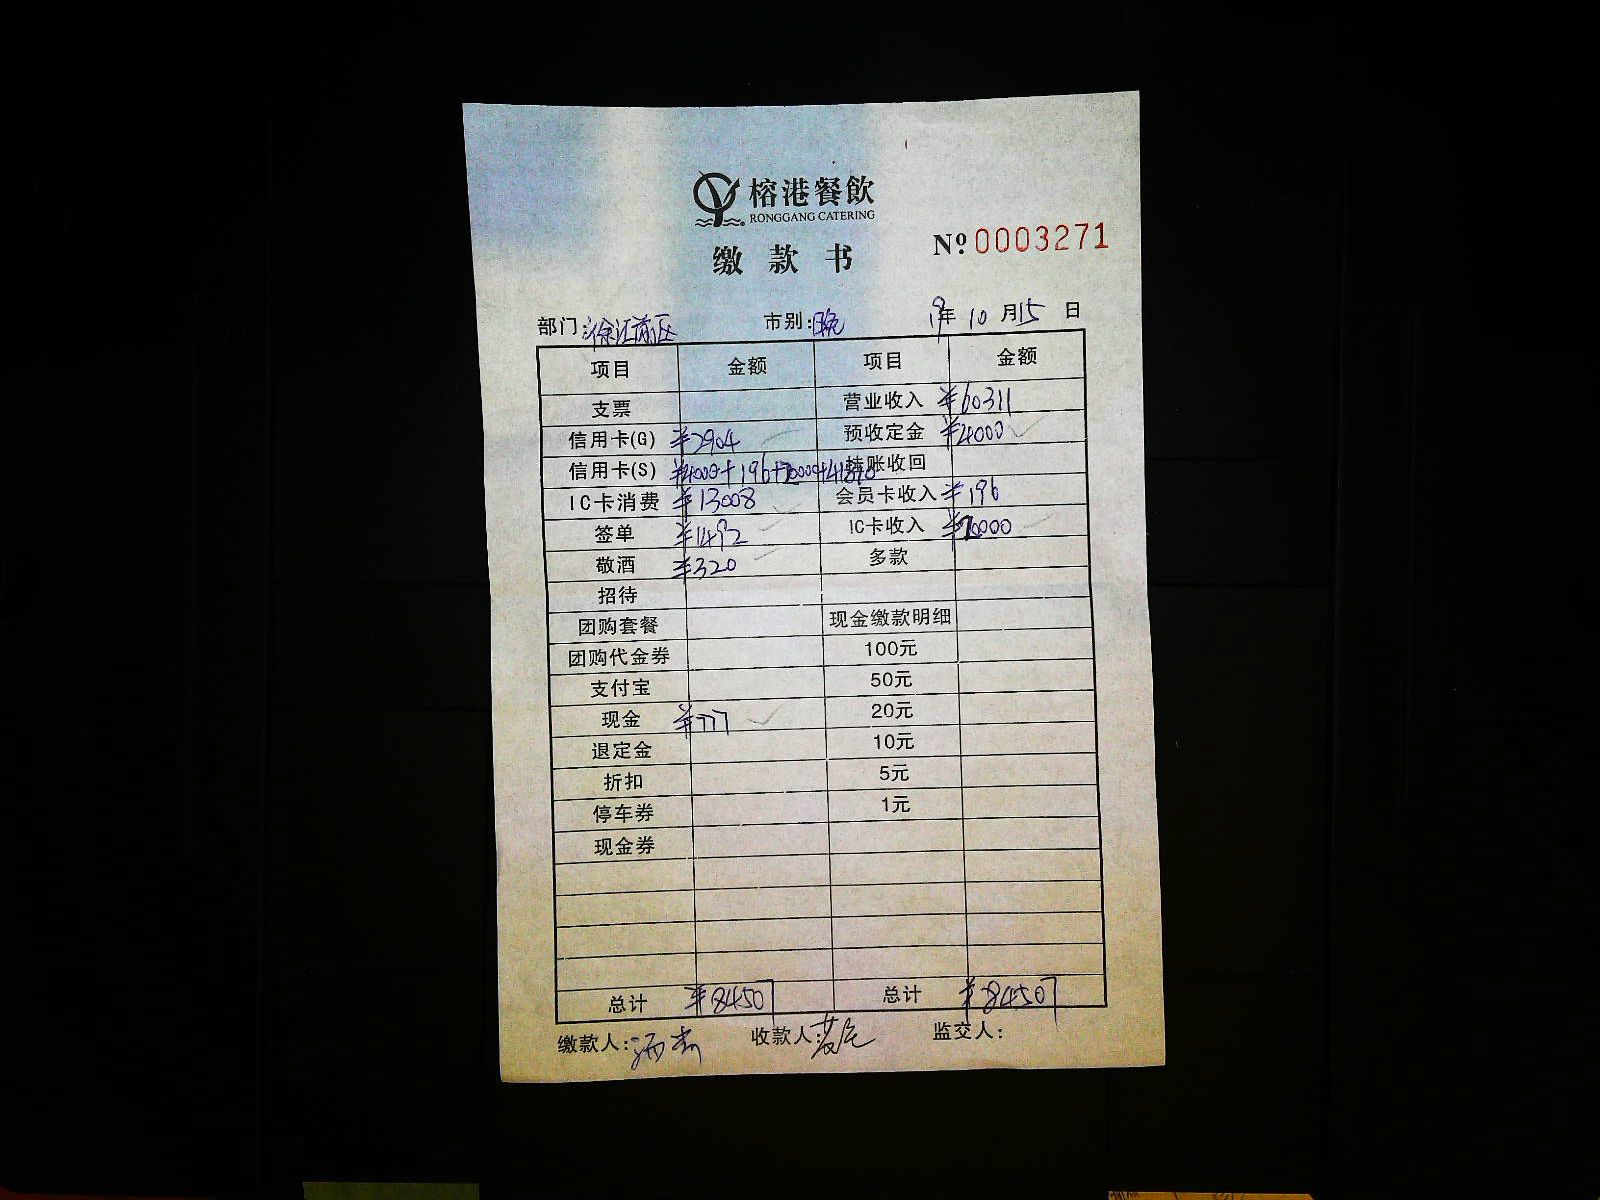 榕港餐飲
RONGGANG CATERING
缴款书
№ 0003271
部门: 市别:晚 19年 10月 15日
项目 金额 项目 金额
支票 营业收入 ¥60311
信用卡(G) ¥2904 预收定金 ¥4000
信用卡(S) ¥4000+196+20000+41810 挂账收回
IC卡消费 ¥13008 会员卡收入 ¥196
签单 ¥1492 IC卡收入 ¥20000
敬酒 ¥320 多款
招待
团购套餐 现金缴款明细
团购代金券 100元
支付宝 50元
现金 ¥777 20元
退定金 10元
折扣 5元
停车券 1元
现金券
总计 ¥84507 总计 ¥84507
缴款人: 收款人: 监交人: